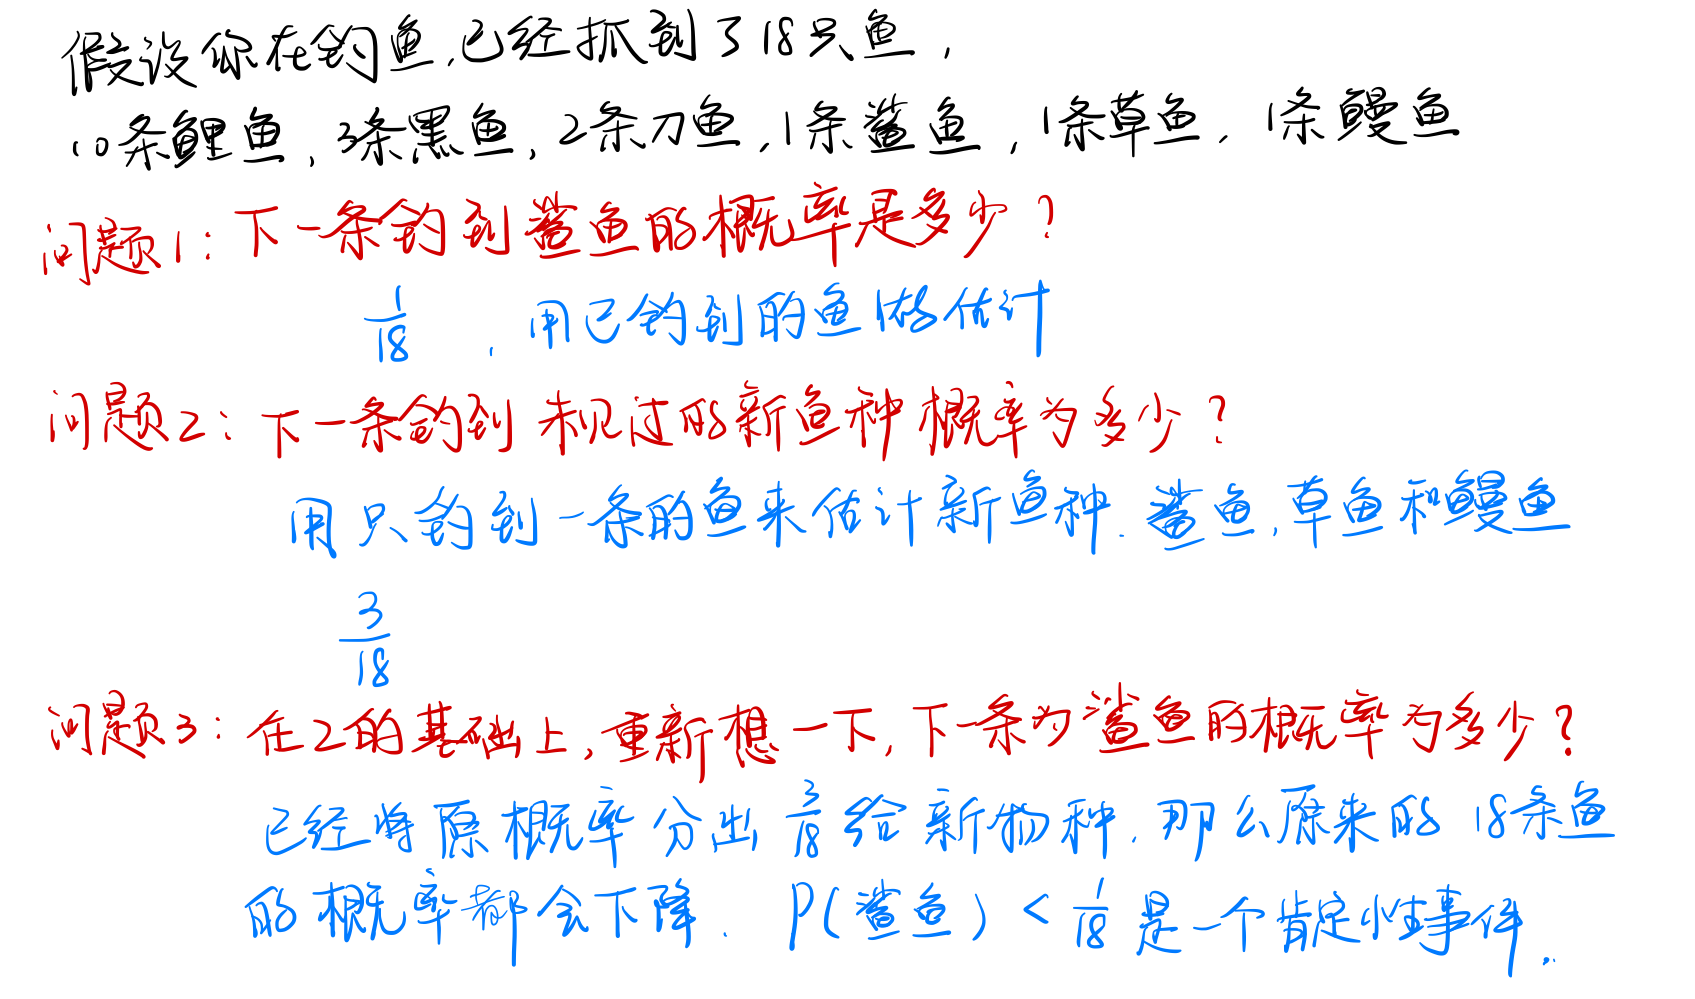 假设你在钓鱼,已经抓到了18只鱼,
10条鲤鱼,3条黑鱼,2条刀鱼,1条鲨鱼,1条草鱼,1条鳗鱼
问题1:下一条钓到鲨鱼的概率是多少?
1/18,用已钓到的鱼做估计
问题2:下一条钓到未见过的新鱼种概率为多少?
用只钓到一条的鱼来估计新鱼种.鲨鱼,草鱼和鳗鱼
3/18
问题3:在2的基础上,重新想一下,下一条为鲨鱼的概率为多少?
已经将原概率分出3/18给新物种.那么原来的18条鱼
的概率都会下降.P(鲨鱼)<1/18是一个肯定性事件.